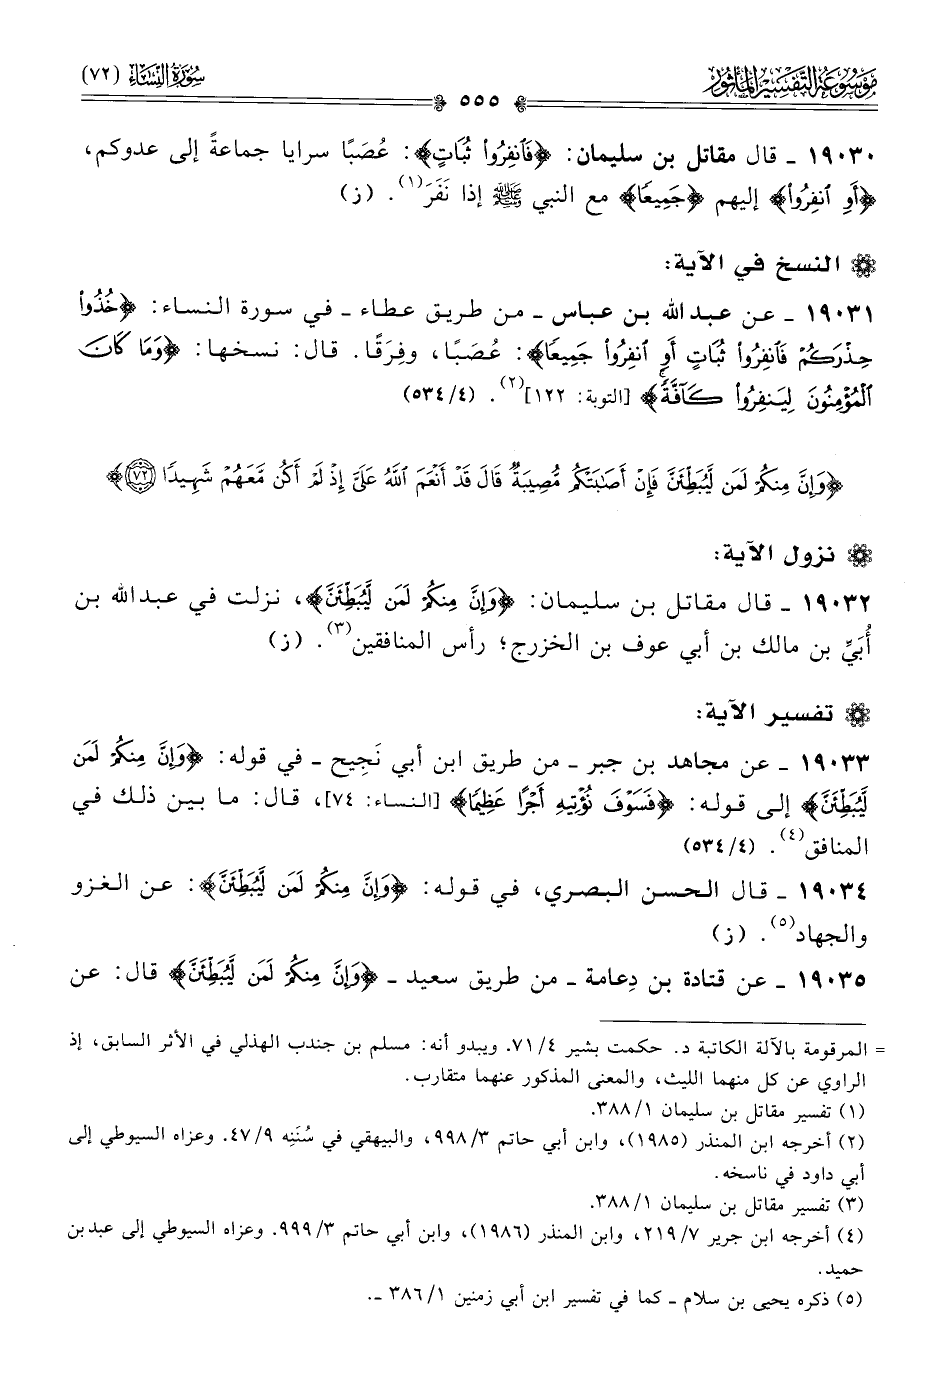 مَوْسُوعَةُ التَّفْسِيرِ المَأْثُور
٥٥٥
سُورَةُ النِّسَاء (٧٢)
١٩٠٣٠ ـ قال مقاتل بن سليمان: ﴿فَٱنفِرُوا۟ ثُبَاتٍ﴾: عُصَبًا سرايا جماعةً إلى عدوكم،
﴿أَوِ ٱنفِرُوا۟﴾ إليهم ﴿جَمِيعًا﴾ مع النبي ﷺ إذا نَفَرَ(١). (ز)
النسخ في الآية:
١٩٠٣١ ـ عن عبد الله بن عباس ـ من طريق عطاء ـ في سورة النساء: ﴿خُذُوا۟
حِذْرَكُمْ فَٱنفِرُوا۟ ثُبَاتٍ أَوِ ٱنفِرُوا۟ جَمِيعًا﴾: عُصَبًا، وفِرَقًا. قال: نسخها: ﴿وَمَا كَانَ
ٱلْمُؤْمِنُونَ لِيَنفِرُوا۟ كَآفَّةً﴾ [التوبة: ١٢٢](٢). (٥٣٤/٤)
﴿وَإِنَّ مِنكُمْ لَمَن لَّيُبَطِّئَنَّ فَإِنْ أَصَٰبَتْكُم مُّصِيبَةٌ قَالَ قَدْ أَنْعَمَ ٱللَّهُ عَلَىَّ إِذْ لَمْ أَكُن مَّعَهُمْ شَهِيدًا ٧٢﴾
نزول الآية:
١٩٠٣٢ ـ قال مقاتل بن سليمان: ﴿وَإِنَّ مِنكُمْ لَمَن لَّيُبَطِّئَنَّ﴾، نزلت في عبد الله بن
أُبَيِّ بن مالك بن أبي عوف بن الخزرج؛ رأس المنافقين(٣). (ز)
تفسير الآية:
١٩٠٣٣ ـ عن مجاهد بن جبر ـ من طريق ابن أبي نَجِيح ـ في قوله: ﴿وَإِنَّ مِنكُمْ لَمَن
لَّيُبَطِّئَنَّ﴾ إلى قوله: ﴿فَسَوْفَ نُؤْتِيهِ أَجْرًا عَظِيمًا﴾ [النساء: ٧٤]، قال: ما بين ذلك في
المنافق(٤). (٥٣٤/٤)
١٩٠٣٤ ـ قال الحسن البصري، في قوله: ﴿وَإِنَّ مِنكُمْ لَمَن لَّيُبَطِّئَنَّ﴾: عن الغزو
والجهاد(٥). (ز)
١٩٠٣٥ ـ عن قتادة بن دِعامة ـ من طريق سعيد ـ ﴿وَإِنَّ مِنكُمْ لَمَن لَّيُبَطِّئَنَّ﴾ قال: عن
= المرقومة بالآلة الكاتبة د. حكمت بشير ٧١/٤. ويبدو أنه: مسلم بن جندب الهذلي في الأثر السابق، إذ
الراوي عن كل منهما الليث، والمعنى المذكور عنهما متقارب.
(١) تفسير مقاتل بن سليمان ٣٨٨/١.
(٢) أخرجه ابن المنذر (١٩٨٥)، وابن أبي حاتم ٩٩٨/٣، والبيهقي في سُنَنِه ٤٧/٩. وعزاه السيوطي إلى
أبي داود في ناسخه.
(٣) تفسير مقاتل بن سليمان ٣٨٨/١.
(٤) أخرجه ابن جرير ٢١٩/٧، وابن المنذر (١٩٨٦)، وابن أبي حاتم ٩٩٩/٣. وعزاه السيوطي إلى عبد بن
حميد.
(٥) ذكره يحيى بن سلام ـ كما في تفسير ابن أبي زمنين ٣٨٦/١ ـ.